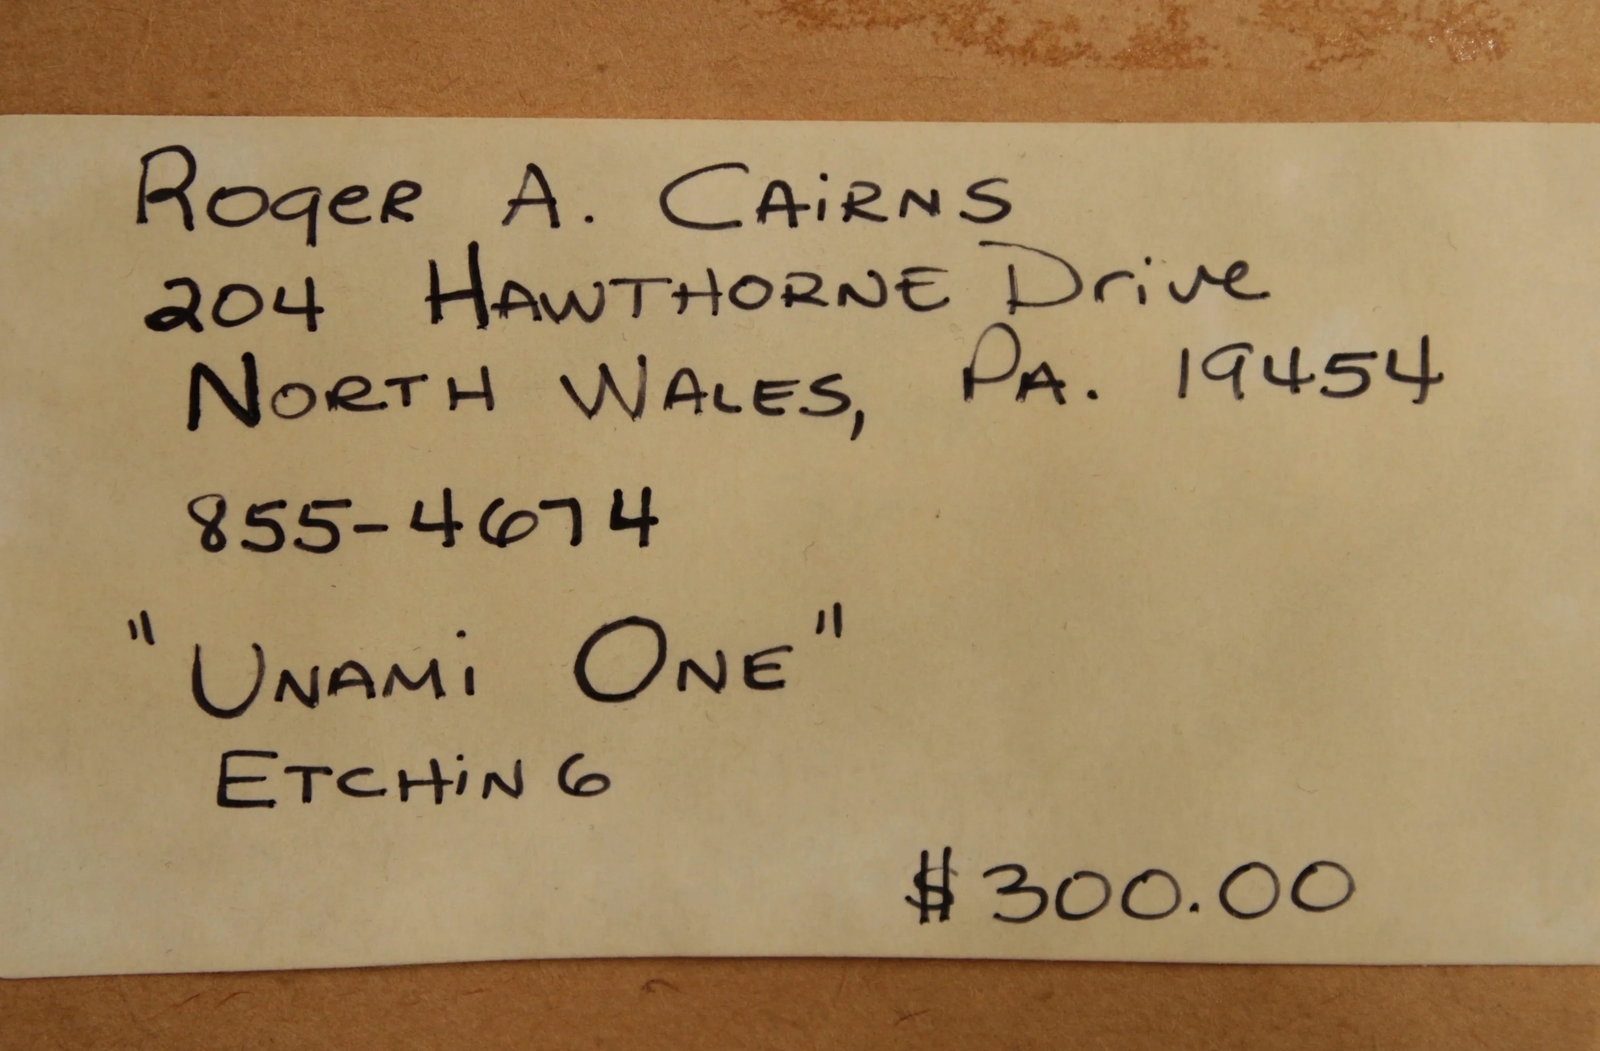 Roger A. Cairns
204 Hawthorne Drive
North Wales, Pa. 19454
855-4674
"Unami One"
Etching
$300.00